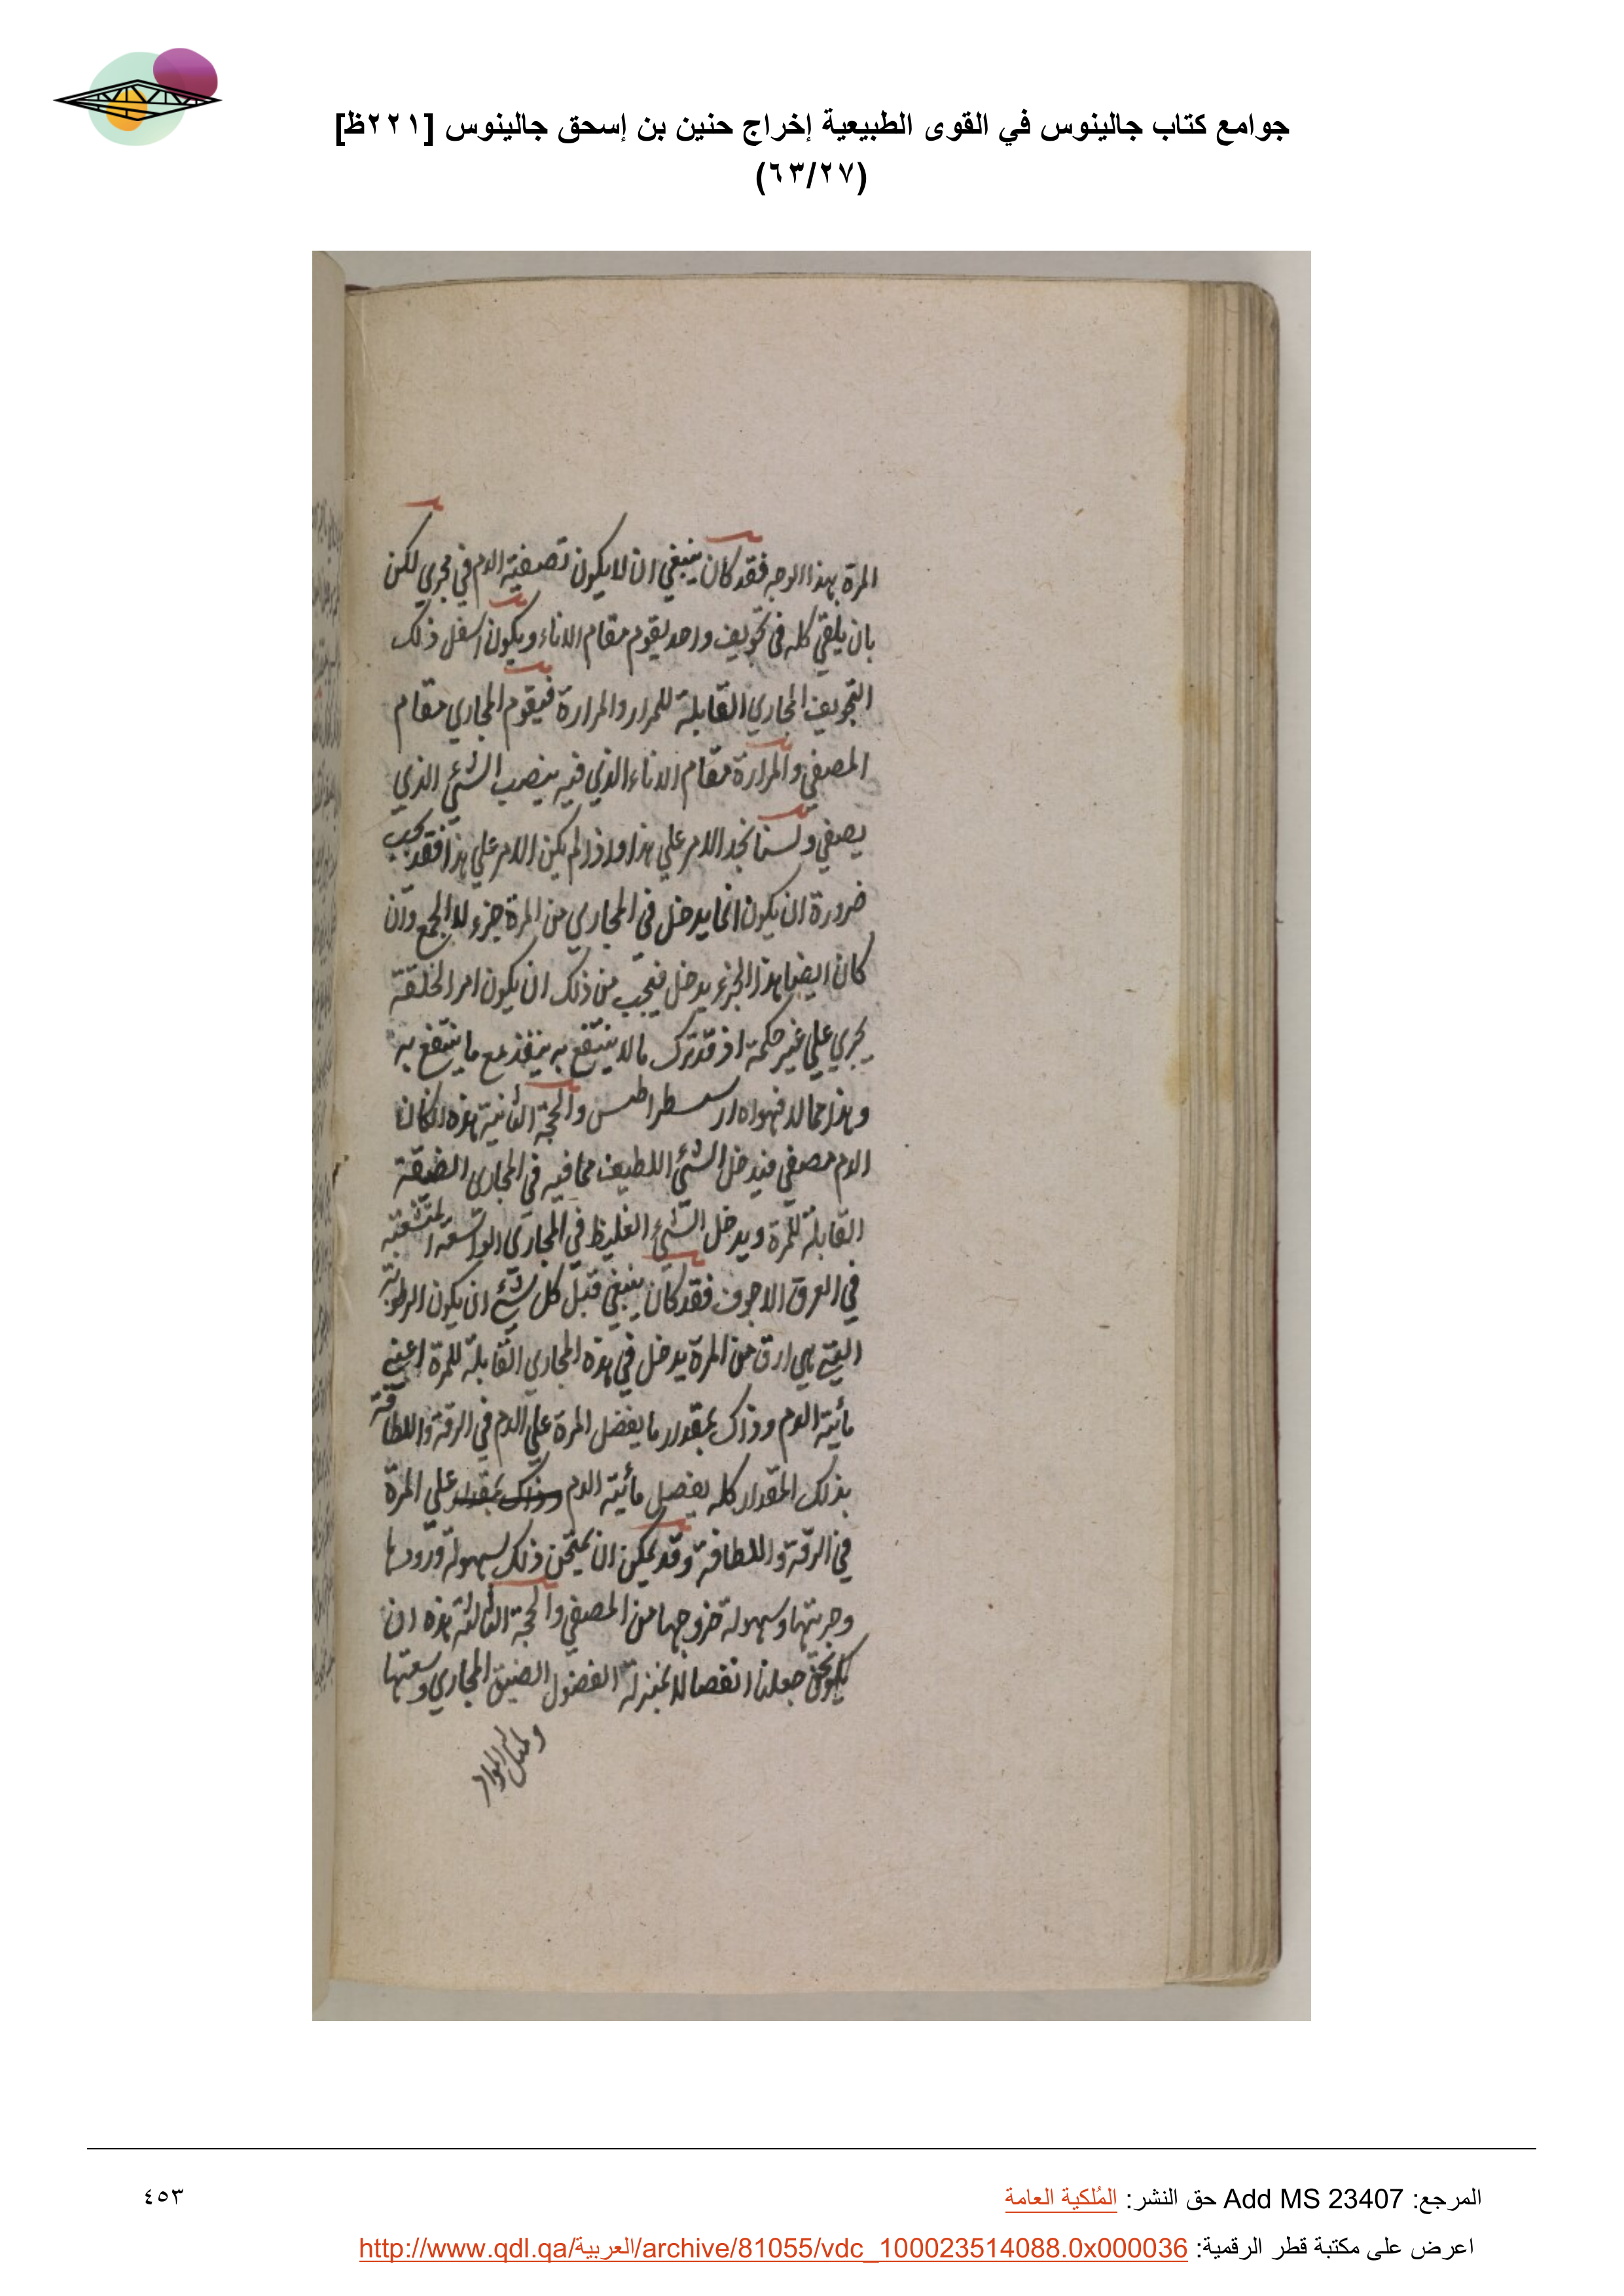 جوامع كتاب جالينوس في القوى الطبيعية إخراج حنين بن إسحق جالينوس [٢٢١ظ]
(٦٣/٢٧)
المرة بهذا الوجه فقد كان ينبغي ان لا يكون تصفية الدم في مجري لكن
بان يلقي كله في تجويف واحد يقوم مقام الاناء ويكون اسفل ذلك
التجويف المجاري القابلة للمرار والمرارة فيقوم المجاري مقام
المصفي والمرارة مقام الاناء الذي فيه ينصب الشئ الذي
يصفي ولسنا نجد الامر علي هذا واذا لم يكن الامر علي هذا فقد يجب
ضرورة ان يكون انما يدخل في المجاري من المرة جزء لا الجمع وان
كان ايضا هذا الجزء يدخل فيجب من ذلك ان يكون امر الخلقة
يجري علي غير حكمة اذ قد ترك ما لا ينتفع به ينفذ مع ما ينتفع به
وهذا مما لا فهواه ارسطراطس والحجة الثانية هذه ان كان
الدم مصفي فيدخل الشئ اللطيف مما فيه في المجاري الضيقة
القابلة للمرة ويدخل الشئ الغليظ في المجاري الواسعة المتشعبة
في العرق الاجوف فقد كان ينبغي قبل كل شئ ان يكون الرطوبة
التي هي ارق من المرة يدخل في هذه المجاري القابلة للمرة اعني
مائية الدم وذاك بمقدار ما يفضل المرة علي الدم في الرقة واللطافة
بذلك المقدار كله يفضل مائية الدم وذاك بمقدار علي المرة
في الرقة واللطافة وقد يمكن ان يمتحن ذلك لسهولة ورودها
وجريتها وسهولة خروجها من المصفي والحجة الثالثة هذه ان
جعلنا انفصال الفضول لضيق المجاري وسعتها
المرجع: Add MS 23407 حق النشر: المُلكية العامة
٤٥٣
اعرض على مكتبة قطر الرقمية: http://www.qdl.qa/العربية/archive/81055/vdc_100023514088.0x000036